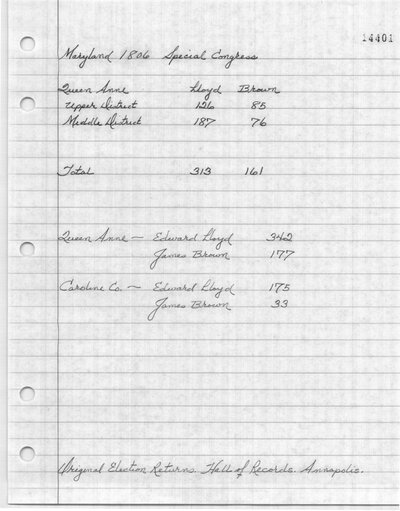 14401
Maryland 1806 Special Congress
Queen Anne Lloyd Brown
Upper District 126 85
Middle District 187 76
Total 313 161
Queen Anne — Edward Lloyd 342
James Brown 177
Caroline Co. — Edward Lloyd 175
James Brown 33
Original Election Returns. Hall of Records. Annapolis.